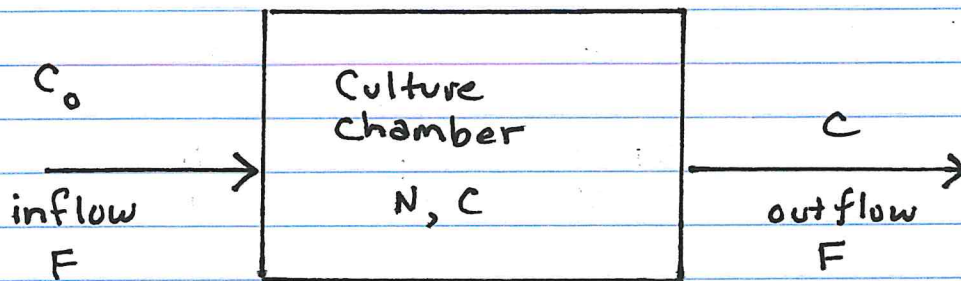 C₀
inflow
F
Culture
chamber
N, C
C
outflow
F